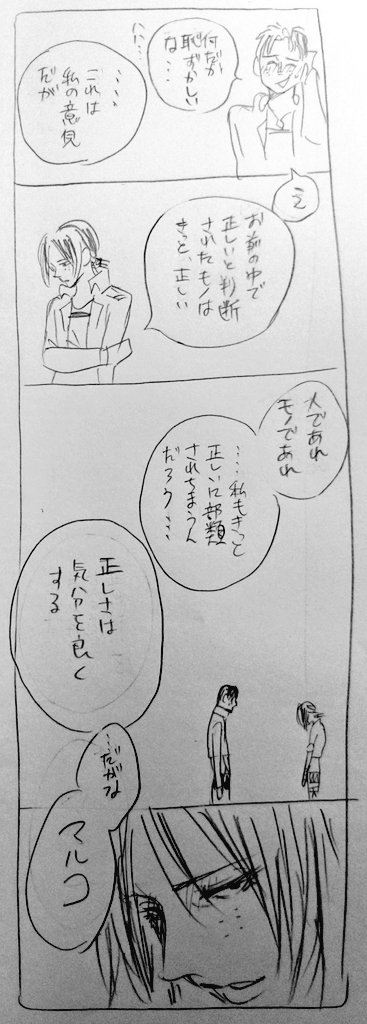 何だか
恥ずかしい
な・・・
ハハ・・・
・・・・
これは
私の意見
だが
え
お前の中で
正しいと判断
されたモノは
きっと、正しい
人であれ
モノであれ
・・・私もきっと
正しいに部類
されちまうん
だろう・・・
正しさは
気分を良く
する
・・だがな
マルコ